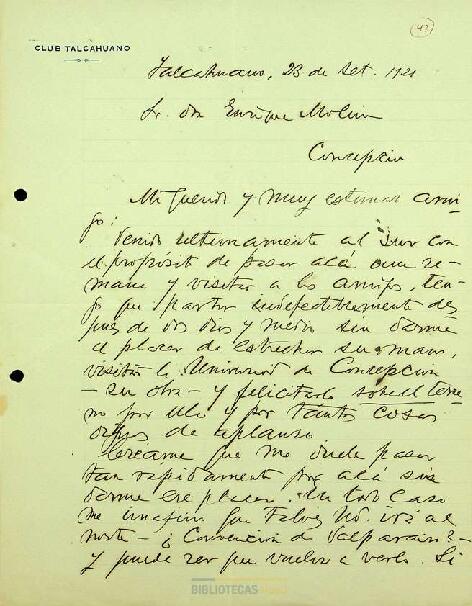 (43)
CLUB TALCAHUANO
Talcahuano, 23 de Set. 1921
Sr. don Enrique Molina
Concepción
Mi querido y muy estimado ami-
go:
Venido ultimamente al Sur con
el propósito de pasar allá una se-
mana y visitar a los amigos, ten-
go que partir indefectiblemente des-
pués de dos días y medio sin darme
el placer de estrechar su mano,
visitar la Universidad de Concepción
- su obra - y felicitarlo sobre el terre-
no por ella y por tantas cosas
dignas de aplauso
Créame que me duele pasar
tan rapidamente por allá sin
darme ese placer. En todo caso
me imagino que Talvez Ud. irá al
norte - ¿Convención de Valparaíso? -
y puede ser que vuelva a verlo. Si
BIBLIOTECAS